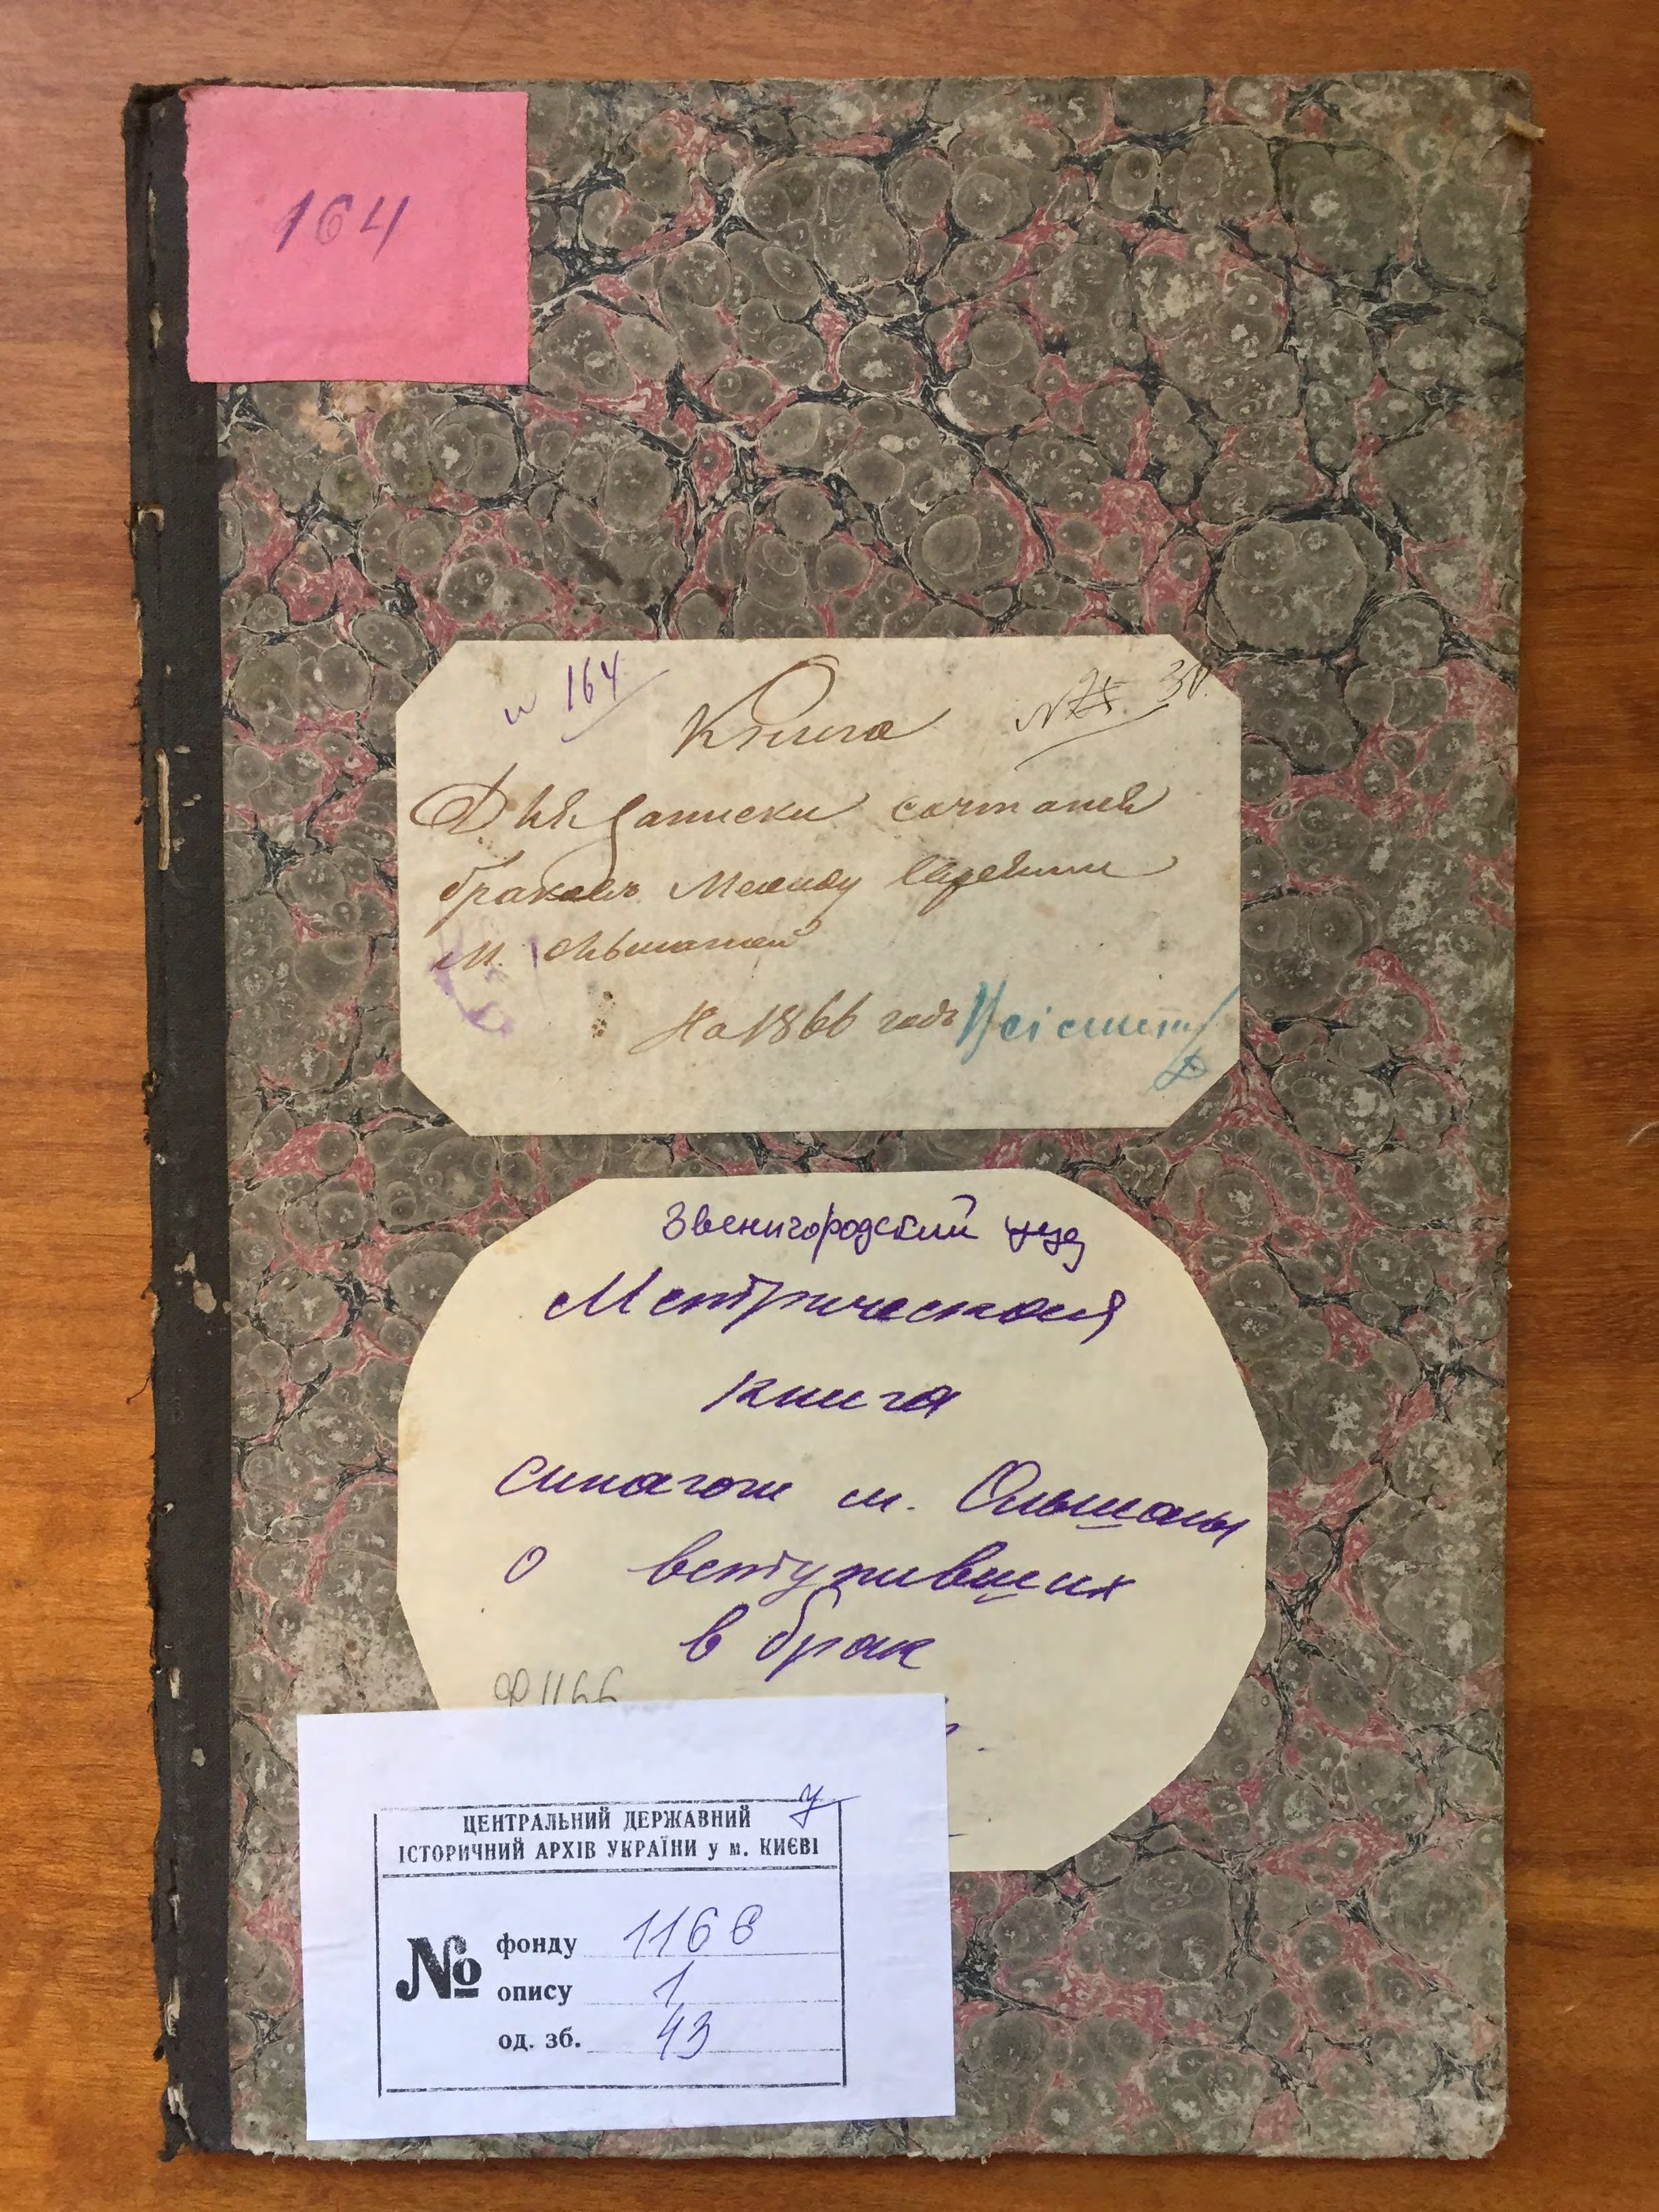 164
и 164
Книга
30.
Для записки сочтаней
браковъ Между Евреями
м. Ольшаной
На 1866 годъ
Звенигородский уезд
Метрическая
книга
синагоги м. Ольшаны
о вступивших
в брак
Ф 1166
ЦЕНТРАЛЬНИЙ ДЕРЖАВНИЙ
ІСТОРИЧНИЙ АРХІВ УКРАЇНИ у м. КИЄВІ
№
фонду 1166
опису 1
од. зб. 43